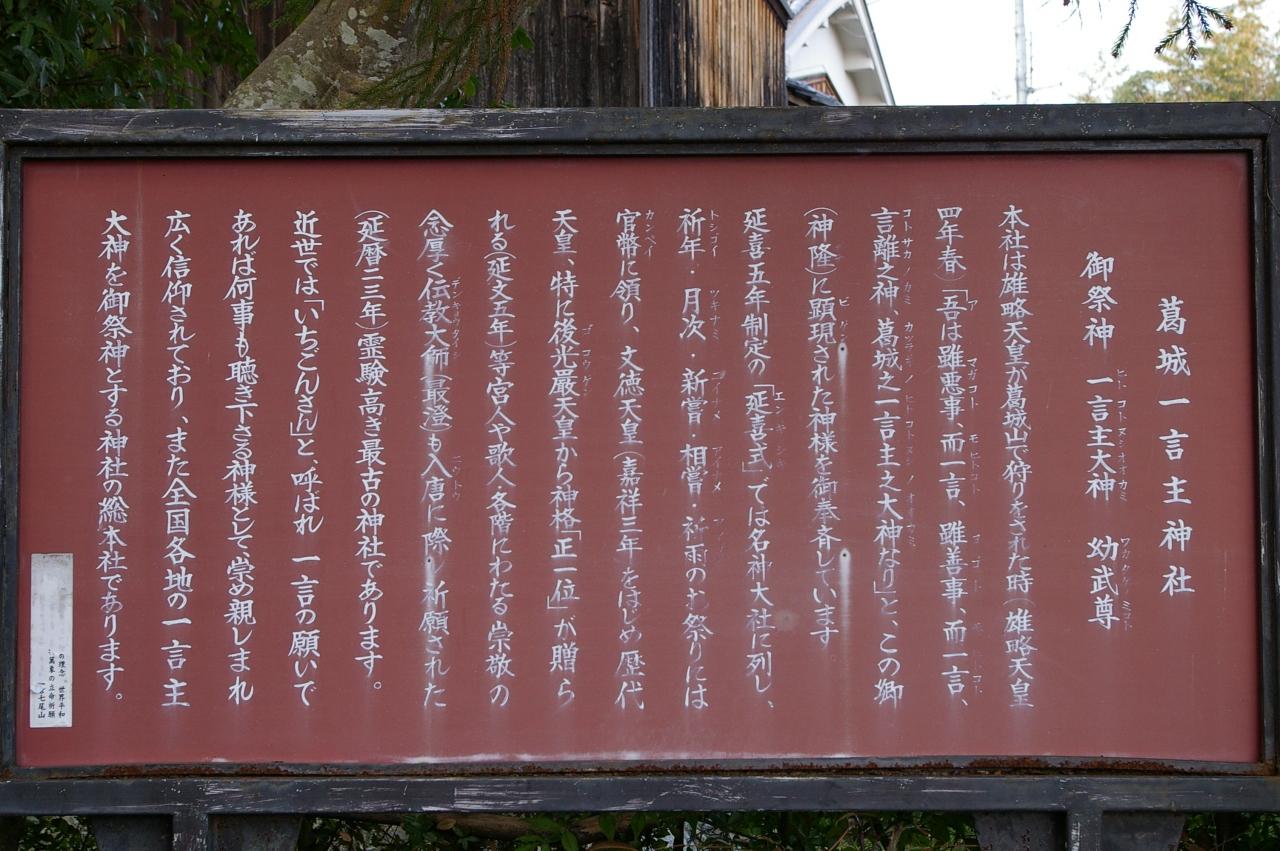 葛城一言主神社
御祭神 一言主大神 幼武尊
本社は雄略天皇が葛城山で狩りをされた時(雄略天皇
四年春)「吾は雖悪事、而一言、雖善事、而一言、
言離之神、葛城之一言主之大神なり」と、この郷
(神降)に顕現された神様を御奉斉しています
延喜五年制定の「延喜式」では名神大社に列し、
祈年・月次・新嘗・相嘗・祈雨のお祭りには
官幣に預り、文徳天皇(嘉祥三年をはじめ歴代
天皇、特に後光厳天皇から神格「正一位」が贈ら
れる(延文五年)等宮人や歌人各階にわたる崇敬の
念厚く伝教大師(最澄)も入唐に際し祈願された
(延暦二三年)霊験高き最古の神社であります。
近世では「いちごんさん」と、呼ばれ 一言の願いで
あれば何事も聴き下さる神様として、崇め親しまれ
広く信仰されており、また全国各地の一言主
大神を御祭神とする神社の総本社であります。
の理念 世界平和
萬象の立命祈願
七尾山